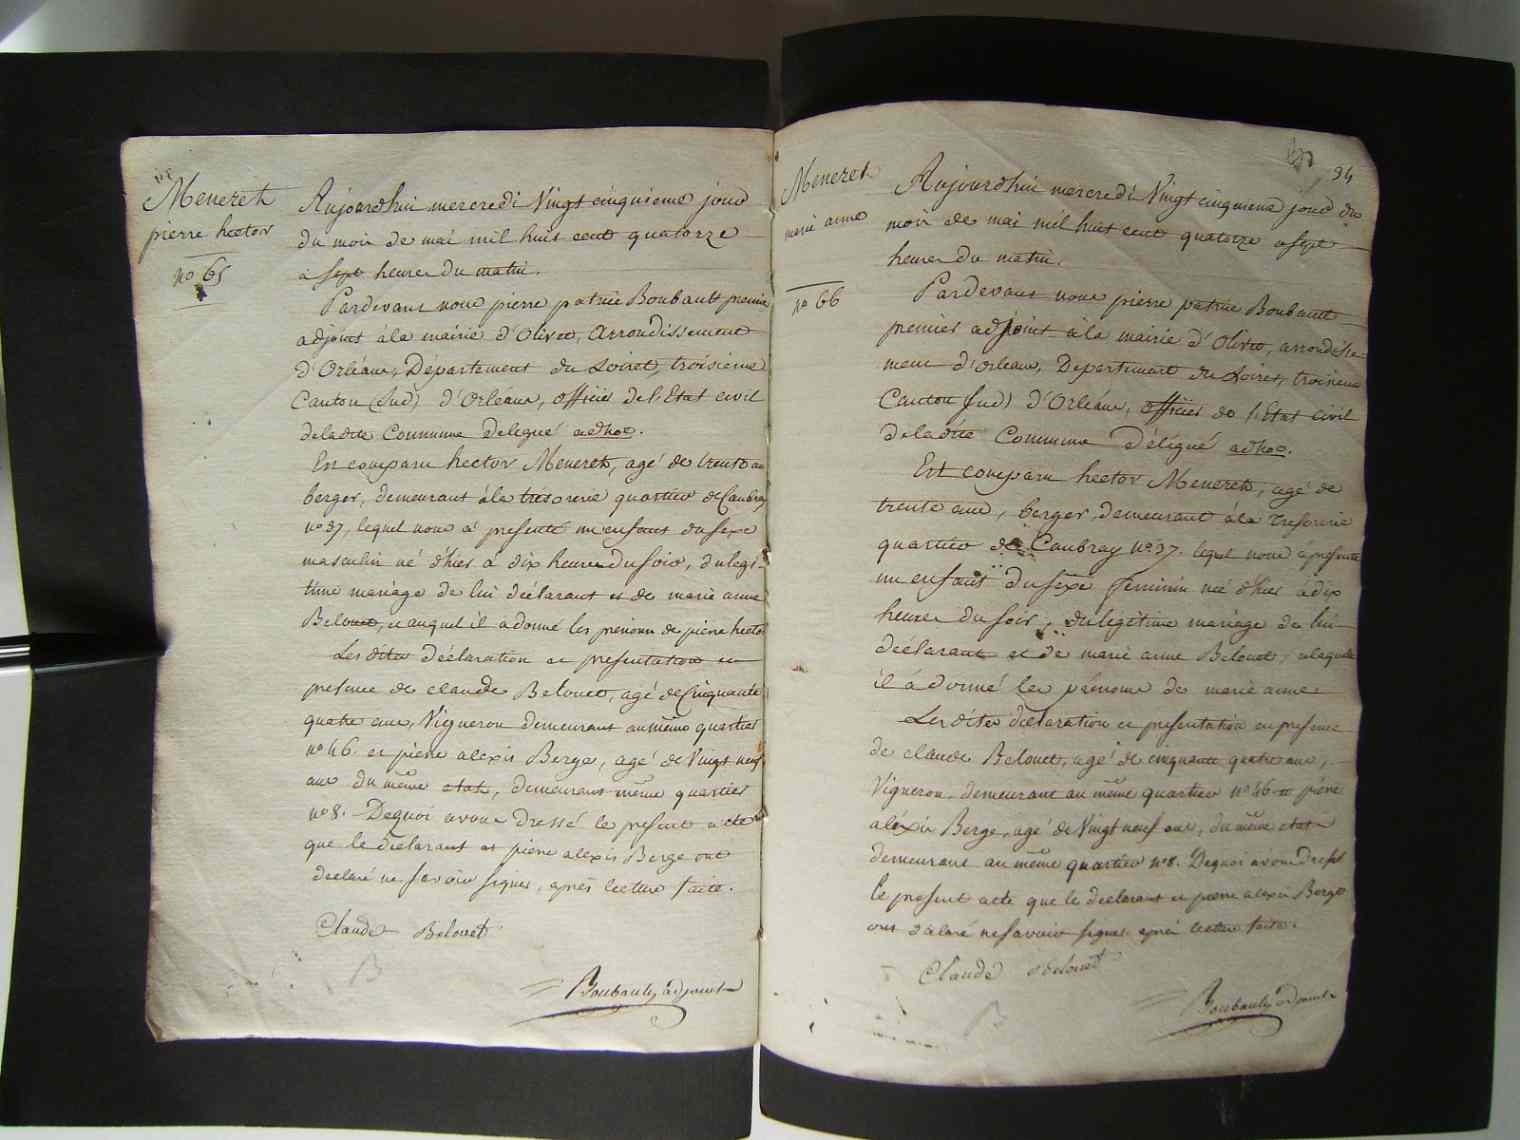 Meneret
pierre hector
no 65
Aujourdhui mercredi Vingt cinquieme jour
du mois de mai mil huit cent quatorze
a sept heures du matin.
Pardevant nous pierre patrice Boubault premier
adjoint à la mairie d'Olivet, arrondissement
d'Orléans, Département du Loiret, troisieme
Canton (Sud) d'Orléans, officier de l'Etat civil
de la dite Commune delegué adhoc.
Est comparu hector Meneret, agé de trente ans
berger, demeurant à la trésorerie quartier de Caubray
no 37, lequel nous a presenté un enfant du sexe
masculin né d'hier à dix heures du soir, du legi-
time mariage de lui déclarant et de marie anne
Belouet, et auquel il a donné les prénoms de pierre hector
Les dites déclaration et presentation en
presence de claude Belouet, agé de Cinquante
quatre ans, Vigneron demeurant au même quartier
no 46. et pierre alexis Berge, agé de Vingt neuf
ans du même etat, demeurant même quartier
no 8. Dequoi avons dressé le present acte
que le declarant et pierre alexis Berge ont
declaré ne savoir signer, après lecture faite.
Claude Belouet
Boubault adjoint
94
Meneret
marie anne
no 66
Aujourdhui mercredi Vingt cinquieme jour du
mois de mai mil huit cent quatorze a sept
heures du matin.
Pardevant nous pierre patrice Boubault
premier adjoint à la mairie d'Olivet, arrondisse-
ment d'Orleans, Departement du Loiret, troisieme
Canton (Sud) d'Orléans, officier de l'Etat civil
de la dite Commune délégué adhoc.
Est comparu hector Meneret, agé de
trente ans, berger, demeurant à la Tresorerie
quartier de Caubray no 37. lequel nous a presenté
un enfant du sexe feminin né d'hier à dix
heures du soir, du légitime mariage de lui
déclarant et de marie anne Belouet, a laquelle
il a donné les prénoms de marie anne
Les dites declaration et presentation en presence
de claude Belouet, agé de cinquante quatre ans,
Vigneron, demeurant au même quartier no 46 et pierre
aléxis Berge, agé de Vingt neuf ans, du même etat
demeurant au même quartier no 8. Dequoi avons dressé
le present acte que le declarant et pierre alexis Berge
ont déclaré ne savoir signer après lecture faite.
Claude Belouet
Boubault adjoint